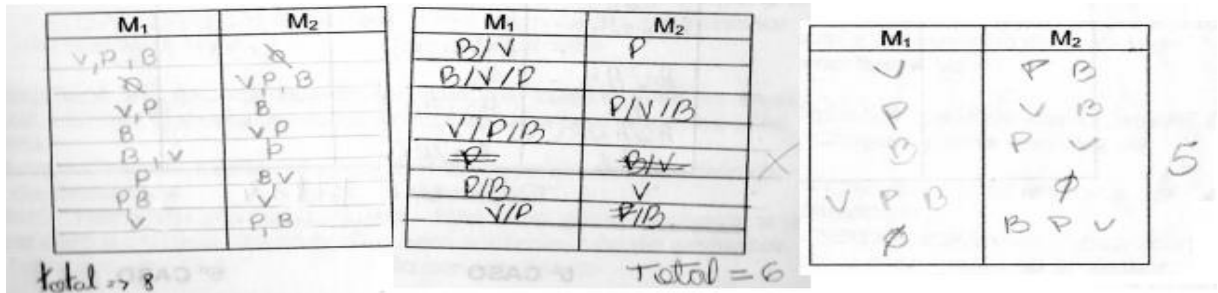 M₁ M₂
V,P,B Ø
Ø V,P,B
V,P B
B V,P
B,V P
P B V
P B V
V P,B
total => 8
M₁ M₂
B/V P
B/V/P
P/V/B
V/P/B
P B/V
P/B V
V/P P/B
Total = 6
M₁ M₂
V P B
P V B
B P V
V P B Ø
Ø B P V
5